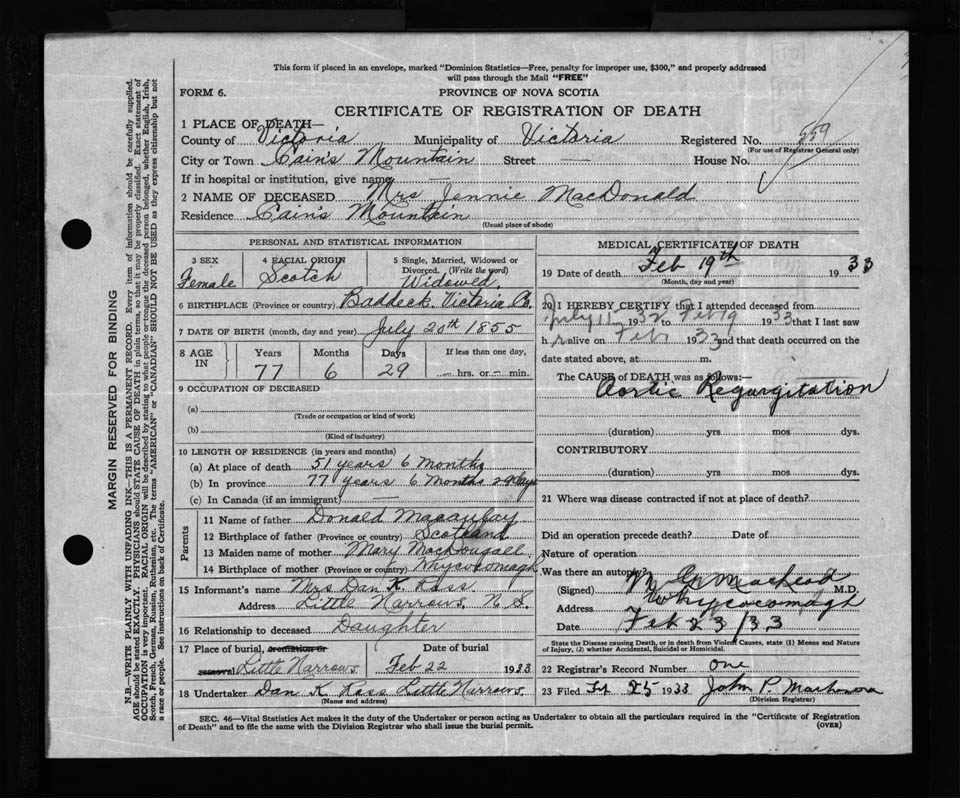 This form if placed in an envelope, marked "Dominion Statistics—Free, penalty for improper use, $300," and properly addressed
will pass through the Mail "FREE"
FORM 6.
PROVINCE OF NOVA SCOTIA
CERTIFICATE OF REGISTRATION OF DEATH
1 PLACE OF DEATH—
County of Victoria Municipality of Victoria Registered No. 559
(For use of Registrar General only)
City or Town Cain's Mountain Street — House No.
If in hospital or institution, give name —
2 NAME OF DECEASED Mrs Jennie MacDonald
Residence Cain's Mountain
(Usual place of abode)
PERSONAL AND STATISTICAL INFORMATION
3 SEX Female
4 RACIAL ORIGIN Scotch
5 Single, Married, Widowed or Divorced. (Write the word) Widowed.
6 BIRTHPLACE (Province or country) Baddeck. Victoria Co.
7 DATE OF BIRTH (month, day and year) July 20th 1855
8 AGE IN
Years Months Days If less than one day,
77 6 29 — hrs. or — min.
9 OCCUPATION OF DECEASED
(a)
(Trade or occupation or kind of work)
(b)
(Kind of industry)
10 LENGTH OF RESIDENCE (in years and months)
(a) At place of death 51 years 6 months
(b) In province 77 years 6 months 29 days
(c) In Canada (if an immigrant) —
Parents
11 Name of father Donald Macaulay
12 Birthplace of father (Province or country) Scotland
13 Maiden name of mother Mary MacDougall
14 Birthplace of mother (Province or country) Whycocomagh
15 Informant's name Mrs Dan K. Ross
Address Little Narrows, N S.
16 Relationship to deceased Daughter
17 Place of burial, cremation or removal Little Narrows.
Date of burial Feb 22 1933
18 Undertaker Dan K Ross Little Narrows.
(Name and address)
MEDICAL CERTIFICATE OF DEATH
19 Date of death Feb 19th 1933
(Month, day and year)
20 I HEREBY CERTIFY that I attended deceased from
July 11 1932 to Feb 19 1933 that I last saw
h er alive on Feb 1933 and that death occurred on the
date stated above, at m.
The CAUSE of DEATH was as follows:—
Aortic Regurgitation
(duration) yrs mos dys.
CONTRIBUTORY
(duration) yrs mos dys.
21 Where was disease contracted if not at place of death?
Did an operation precede death? Date of
Nature of operation
Was there an autopsy?
(Signed) MacLeod M.D.
Address Whycocomagh
Date Feb 23/33
State the Disease causing Death, or in death from Violent Causes, state (1) Means and Nature of Injury, (2) whether Accidental, Suicidal or Homicidal.
22 Registrar's Record Number one
23 Filed 25 1933 John P.
(Division Registrar)
SEC. 46—Vital Statistics Act makes it the duty of the Undertaker or person acting as Undertaker to obtain all the particulars required in the "Certificate of Registration
of Death" and to file the same with the Division Registrar who shall issue the burial permit.
(OVER)
MARGIN RESERVED FOR BINDING
N.B.—WRITE PLAINLY WITH UNFADING INK—THIS IS A PERMANENT RECORD. Every item of information should be carefully supplied.
AGE should be stated EXACTLY. PHYSICIANS should STATE CAUSE OF DEATH in plain terms, so that it may be properly classified. Exact statement of
OCCUPATION is very important. RACIAL ORIGIN will be described by stating to what people or tongue the deceased person belonged, whether English, Irish,
Scotch, French, German, Russian, Ruthenian, etc. The terms "AMERICAN" or "CANADIAN" SHOULD NOT BE USED as they express citizenship but not
a race or people. See instructions on back of Certificate.